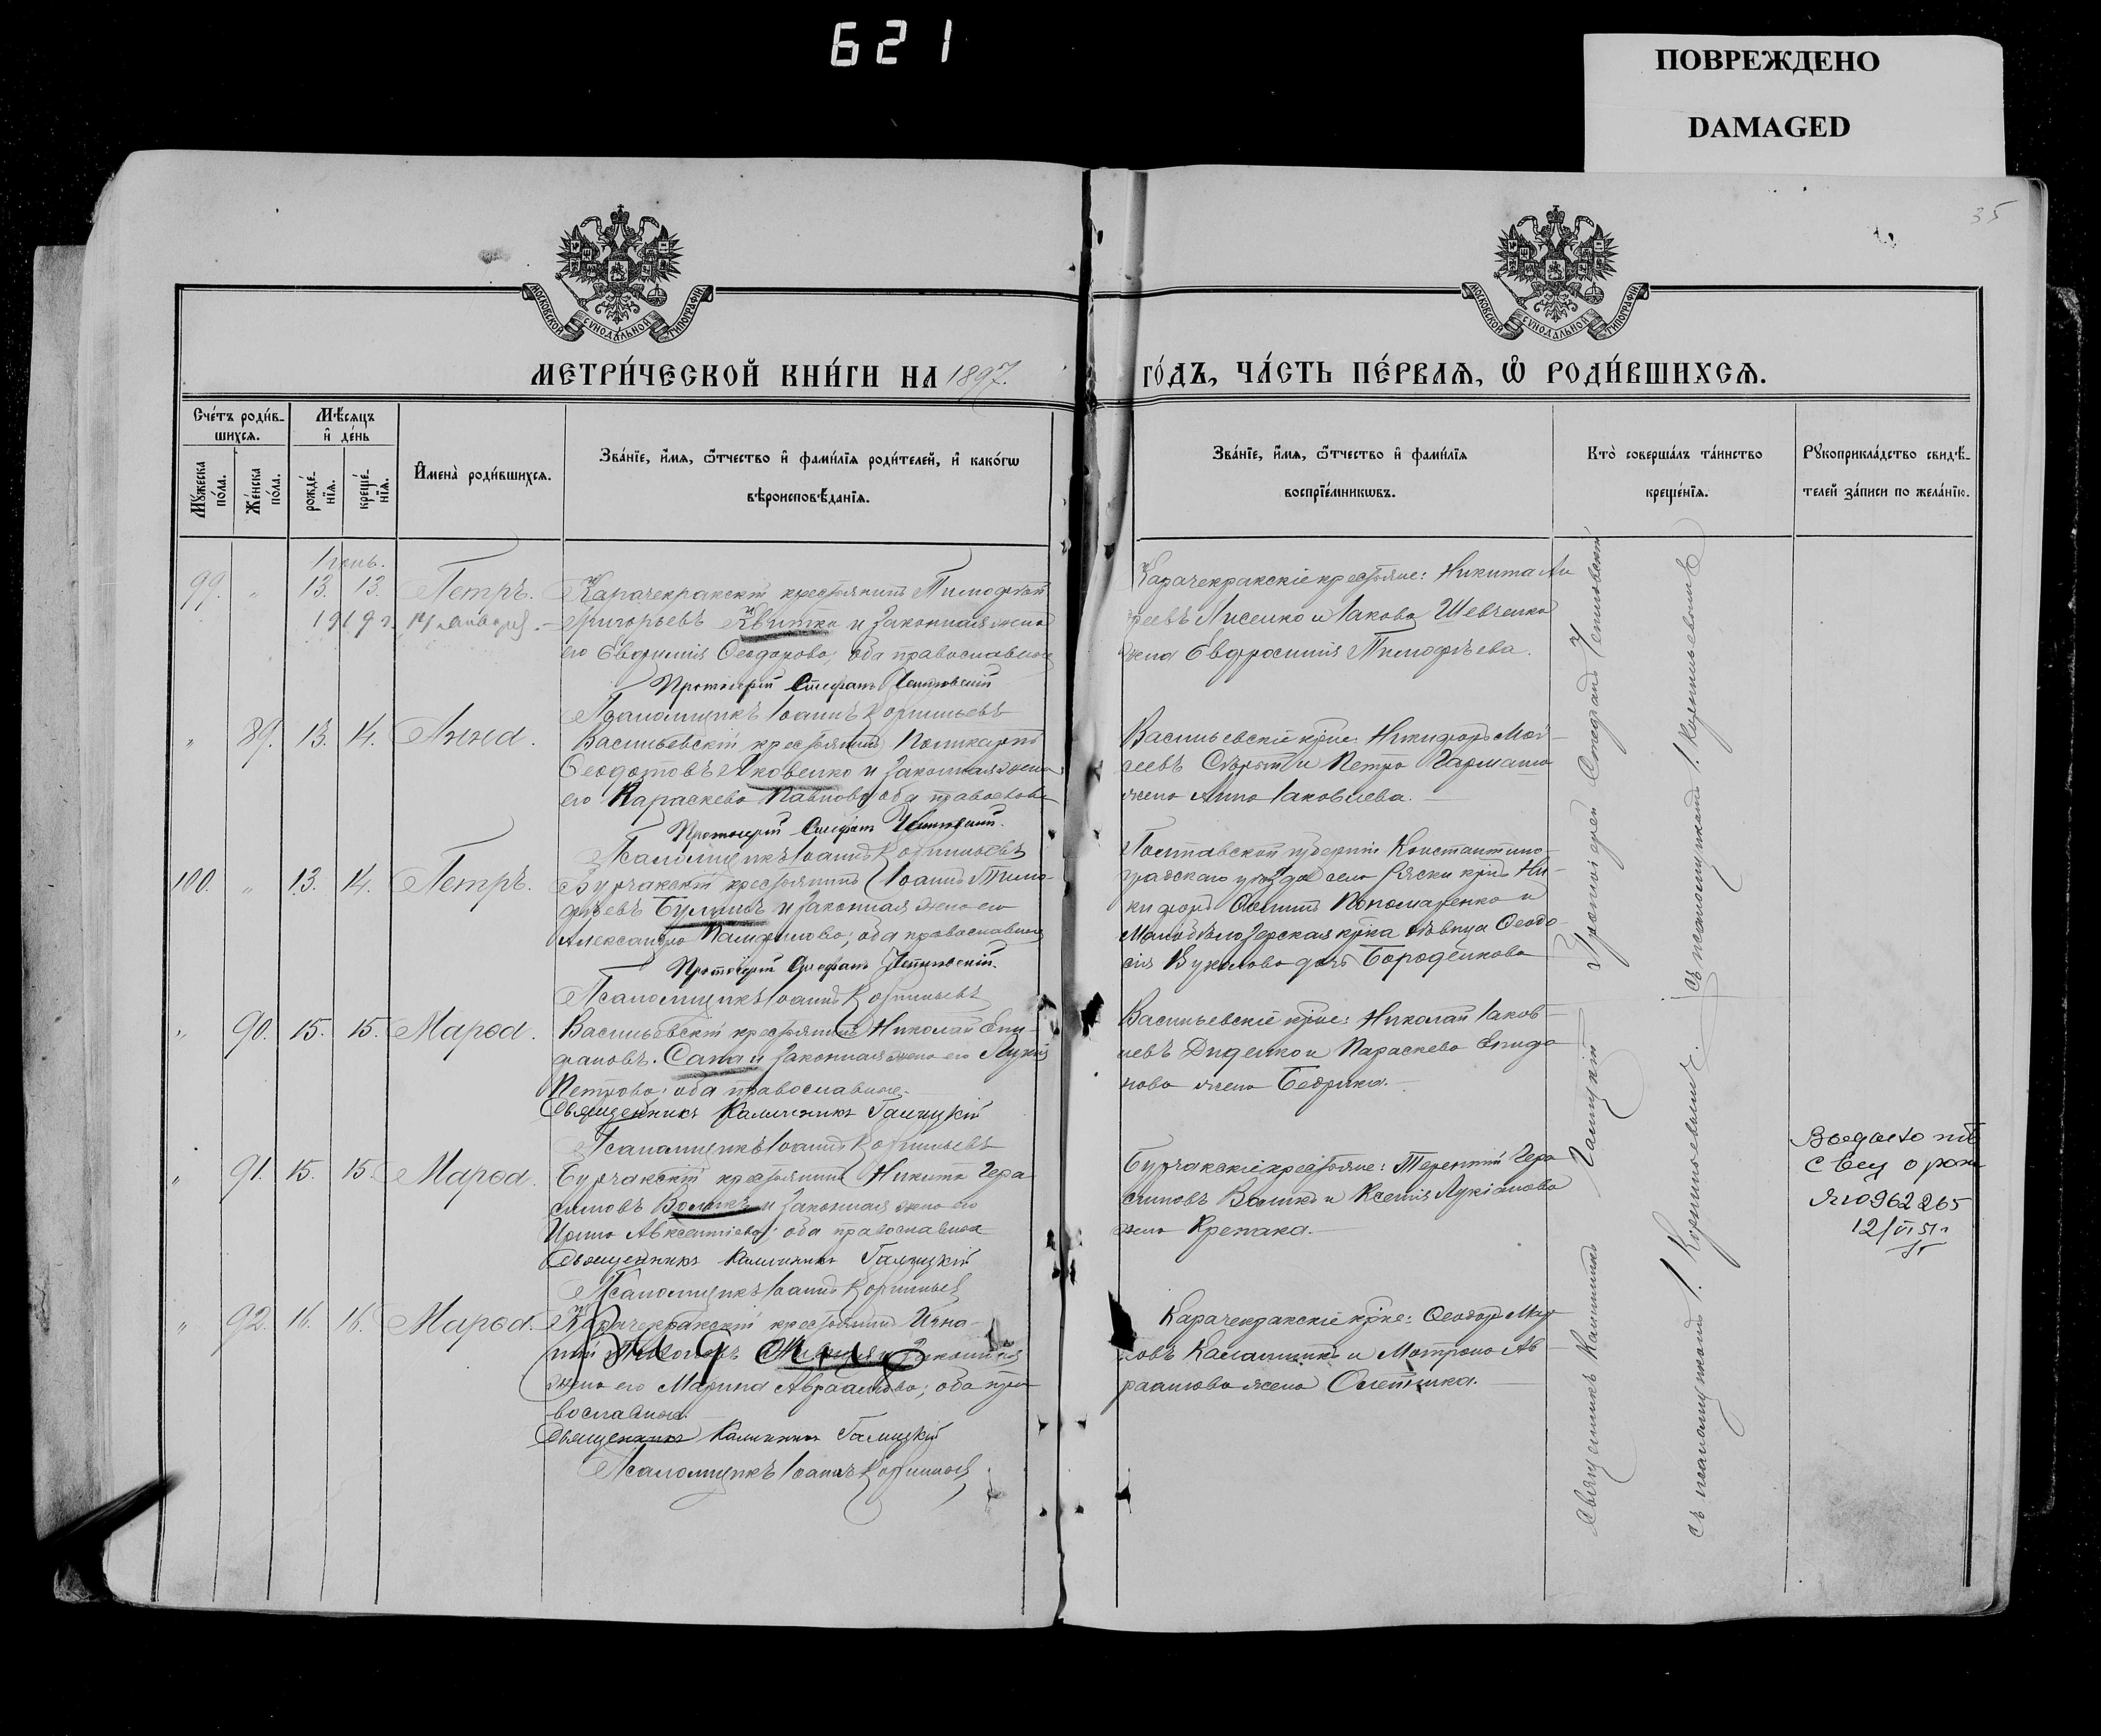 621
ПОВРЕЖДЕНО
DAMAGED
35
МОСКОВСКОЙ СѴНОДАЛЬНОЙ ТИПОГРАФІИ
МОСКОВСКОЙ СѴНОДАЛЬНОЙ ТИПОГРАФІИ
МЕТРИ́ЧЕСКОЙ КНИ́ГИ НА 1897.
ГО́ДЪ, ЧА́СТЬ ПЕ́РВАѦ, Ѡ РОДИ́ВШИХСѦ.
Сче́тъ роди́в-
шихсѧ.
Мꙋ́жеска по́ла.
Же́нска по́ла.
Мѣ́сѧцъ
и҆ де́нь
рожде́-нїѧ.
креще́-нїѧ.
И҆мена̀ роди́вшихсѧ.
Зва́нїе, и҆́мѧ, ѻ҆́тчество и҆ фами́лїѧ роди́телей, и҆ како́гѡ
вѣроисповѣ́данїѧ.
Зва́нїе, и҆́мѧ, ѻ҆́тчество и҆ фами́лїѧ
воспрїе́мникѡвъ.
Кто̀ соверша́лъ та́инство
креще́нїѧ.
Рꙋкоприкла́дство свидѣ́-
телей за́писи по жела́нїю.
Іюнь.
99. " 13. 13. Петръ. Карачекракскій крестьянинъ Тимофей
1919 г. 14 января. Григорьевъ Квитка и законная жена
его Евфимія Ѳеодорова, оба православные
Протоіерей Стефанъ
Псаломщикъ Іоаннъ Корнильевъ
Карачекракскіе крестьяне: Никита Ан
дреевъ Лисенко и Іакова Шевченко
жена Евфросинія Тимофѣева.
" 89. 13. 14. Анна. Васильевскій крестьянинъ Поликарпъ
Ѳеодотовъ Яковенко и законная жена
его Параскева Павлова оба православн
Протоіерей Стефанъ
Псаломщикъ Іоаннъ Корнильевъ
Васильевскіе кр-не: Никифоръ Мои-
сеевъ Сѣрый и Петра Гармаша
жена Анна Іаковлева.
100. " 13. 14. Петръ. Бурчакскій крестьянинъ Іоаннъ Тимо-
фѣевъ и законная жена его
Александра Памфилова; оба православные
Протоіерей Стефанъ
Псаломщикъ Іоаннъ Корнильевъ
Полтавской губерніи Константино-
градскаго уѣзда села кр-нъ Ни-
кифоръ Пономаренко и
Малобѣлозерская кр-ка дѣвица Ѳеодо-
сія Вукилова дочь Бороденкова
" 90. 15. 15. Марѳа. Васильевскій крестьянинъ Николай Епи-
фановъ. и законная жена его Лукія
Петрова; оба православные.
Священникъ Каллиникъ Галицкій
Псаломщикъ Іоаннъ Корнильевъ
Васильевскіе кр-не: Николай Іаков-
левъ Диденко и Параскева Епифа
нова жена
" 91. 15. 15. Марѳа. Бурчакскій крестьянинъ Никита Гера
симовъ Волыкъ и законная жена его
Ирина Авксентіева; оба православные
Священникъ Каллиникъ Галицкій
Псаломщикъ Іоаннъ Корнильев
Бурчакскіе крестьяне: Терентій Гера
симовъ Волыкъ и Ксенія Лукіанова
жена
Выдано
св о рож
ЯЮ 962265
12/VI 51 г
" 92. 16. 16. Марѳа. Карачекракскій крестьянинъ Игна-
тій и законная
жена его Марина Авраамова; оба пра
вославные.
Священникъ Каллиникъ Галицкій
Псаломщикъ Іоаннъ Корнильев
Карачекракскіе кр-не: Ѳеодоръ Мар
ковъ Калашникъ и Матрона Ав
раамова жена
Протоіерей Стефанъ
съ псаломщикомъ І. Корнильевымъ
Священникъ Каллиникъ Галицкій
съ псаломщикомъ І. Корнильевымъ.